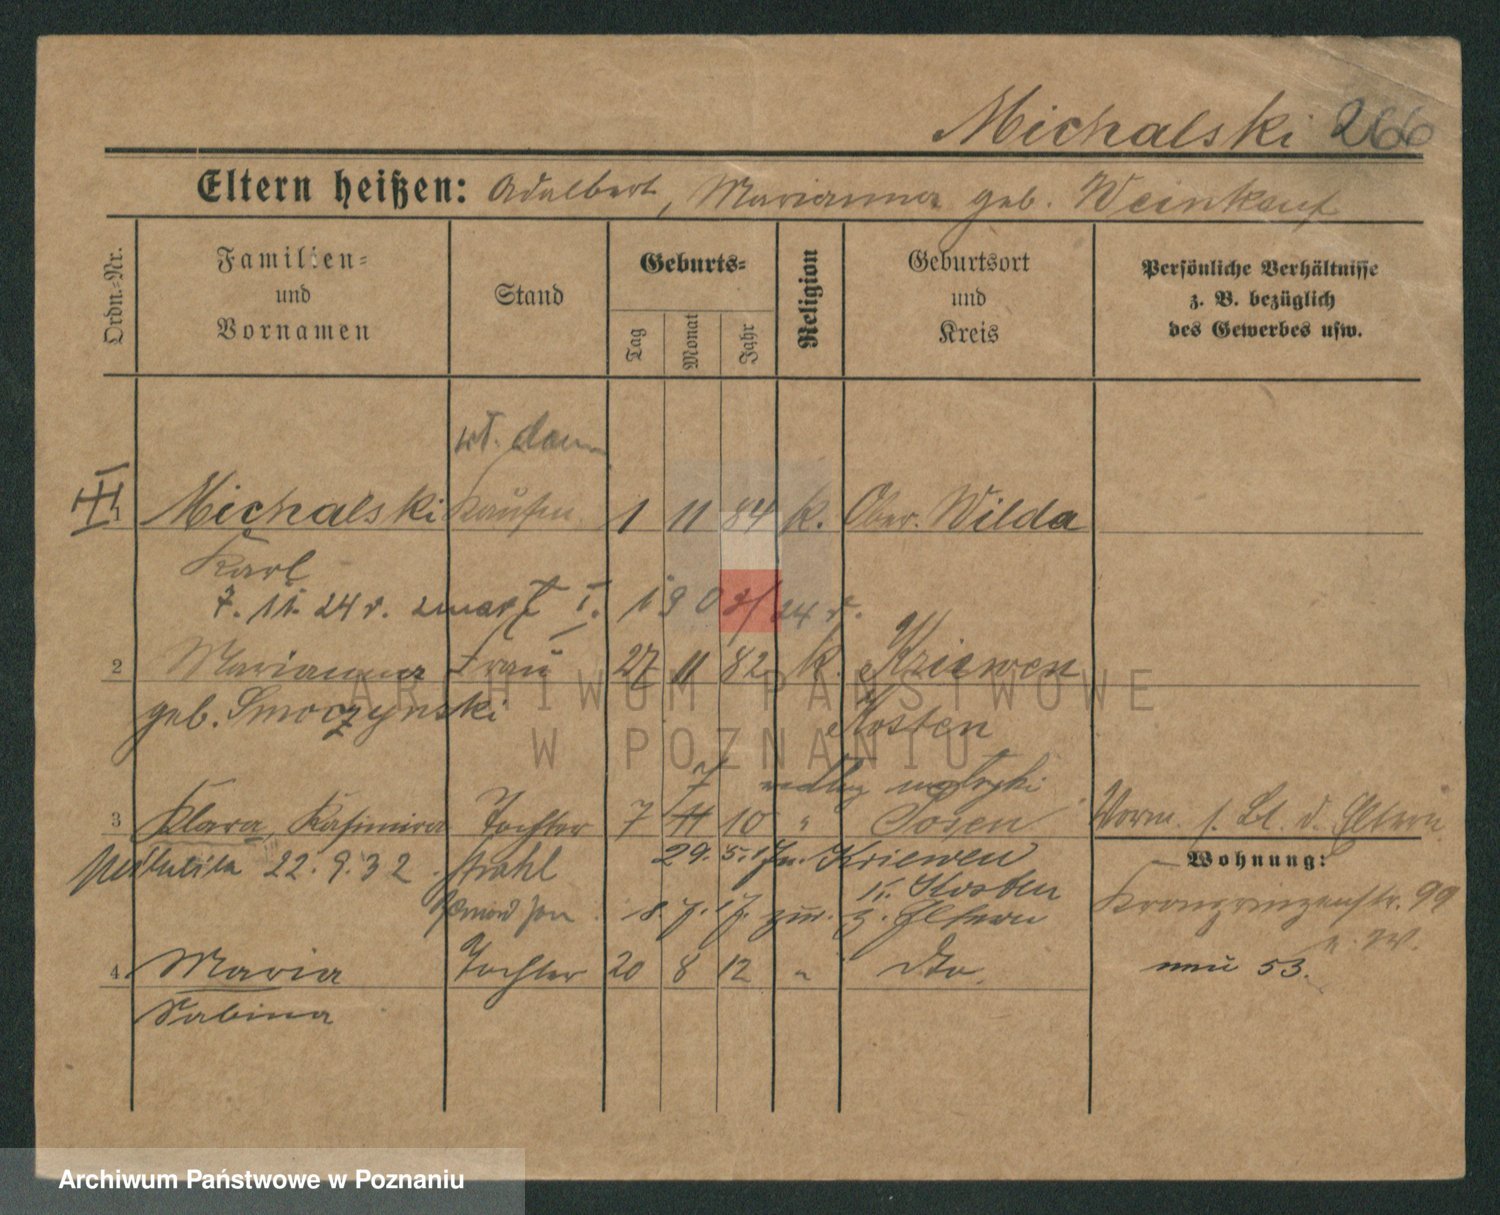 Michalski 266
Eltern heißen: Adalbert, Marianna geb. Weinkauf
Ordn.-Nr.
Familien-
und
Vornamen
Stand
Geburts-
Tag
Monat
Jahr
Religion
Geburtsort
und
Kreis
Persönliche Verhältnisse
z. B. bezüglich
des Gewerbes usw.
1 Michalski 1 11 84 k. Ober. Wilda
Karl
7. 11. 24 r. zmarł I. 1903/24 r.
2 Marianna Frau 27 11 82 k. Kriewen
geb. Smoczynski Kosten
ARCHIWUM PAŃSTWOWE
W POZNANIU
7 według metryki
3 Klara, Kasimira Tochter 7 11 10 " Posen
d. Eltern
Wohnung:
22. 9. 32. 29. 5. 17 Kriewen
K. Kosten
18. 7. 17 z. Eltern
Kronprinzenstr. 99
4 Maria Tochter 20 8 12 " dto.
neu 53.
Sabina
Archiwum Państwowe w Poznaniu